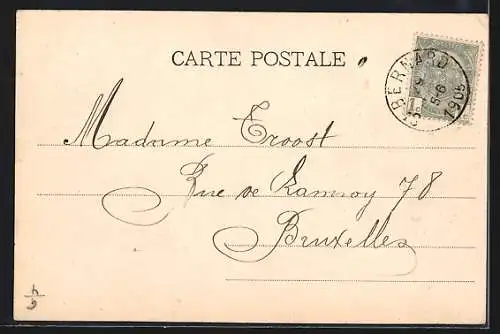 CARTE POSTALE
ST BERNARD
5-6
1905
1
Madame Troost
Rue de Lannoy 78
Bruxelles